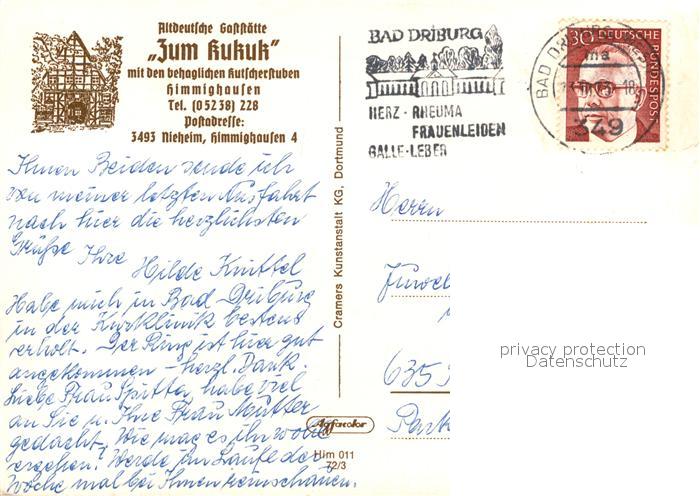 Altdeutsche Gaststätte
„Zum Kukuk"
mit den behaglichen Kutscherstuben
Himmighausen
Tel. (0 52 38) 228
Postadresse:
3493 Nieheim, Himmighausen 4
Ihnen Beiden sende ich
von meiner letzten Ausfahrt
nach hier die herzlichsten
Grüße Ihre
Hilde Knittel
Habe mich in Bad-Driburg
in der Kurklinik bestens
erholt. Der Ring ist hier gut
angekommen – herzl. Dank.
Liebe Frau Sputta, habe viel
an Sie u. Ihre Frau Mutter
gedacht. Wie mag es ihr wohl
ergehen? Werde im Laufe der
Woche mal bei Ihnen reinschauen.
Cramers Kunstanstalt KG, Dortmund
Agfacolor
Him 011
72/3
BAD DRIBURG
HERZ - RHEUMA
FRAUENLEIDEN
GALLE-LEBER
BAD DRIBURG
ma
349
30 DEUTSCHE
BUNDESPOST
Herrn
Juwel
635
Park
privacy protection
Datenschutz